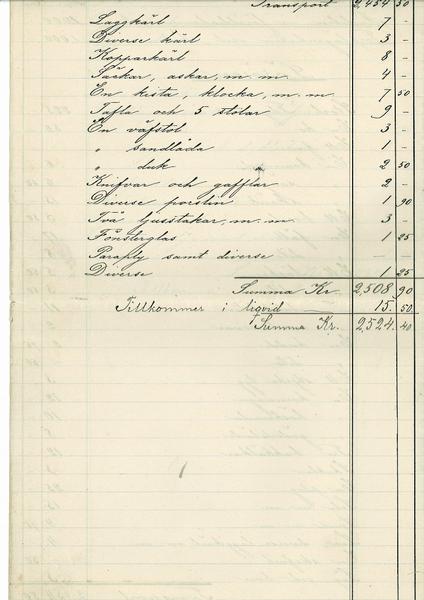 Transport 2,454 50
Laggkärl 7 –
Diverse kärl 3 –
Kopparkärl 8 –
Säckar, askar, m. m. 4 –
En kista, klocka, m. m. 7 50
Tafla och 5 stolar 9 –
En väfstol 3 –
" sandlåda 1 –
" duk 2 50
Knifvar och gafflar 2 –
Diverse porslin 1 90
Två ljusstakar, m. m. 3 –
Fönsterglas 1 25
Paraply samt diverse – –
Diverse 1 25
Summa Kr. 2,508 90
Tillkommer i liqvid 15. 50
Summa Kr. 2,524. 40